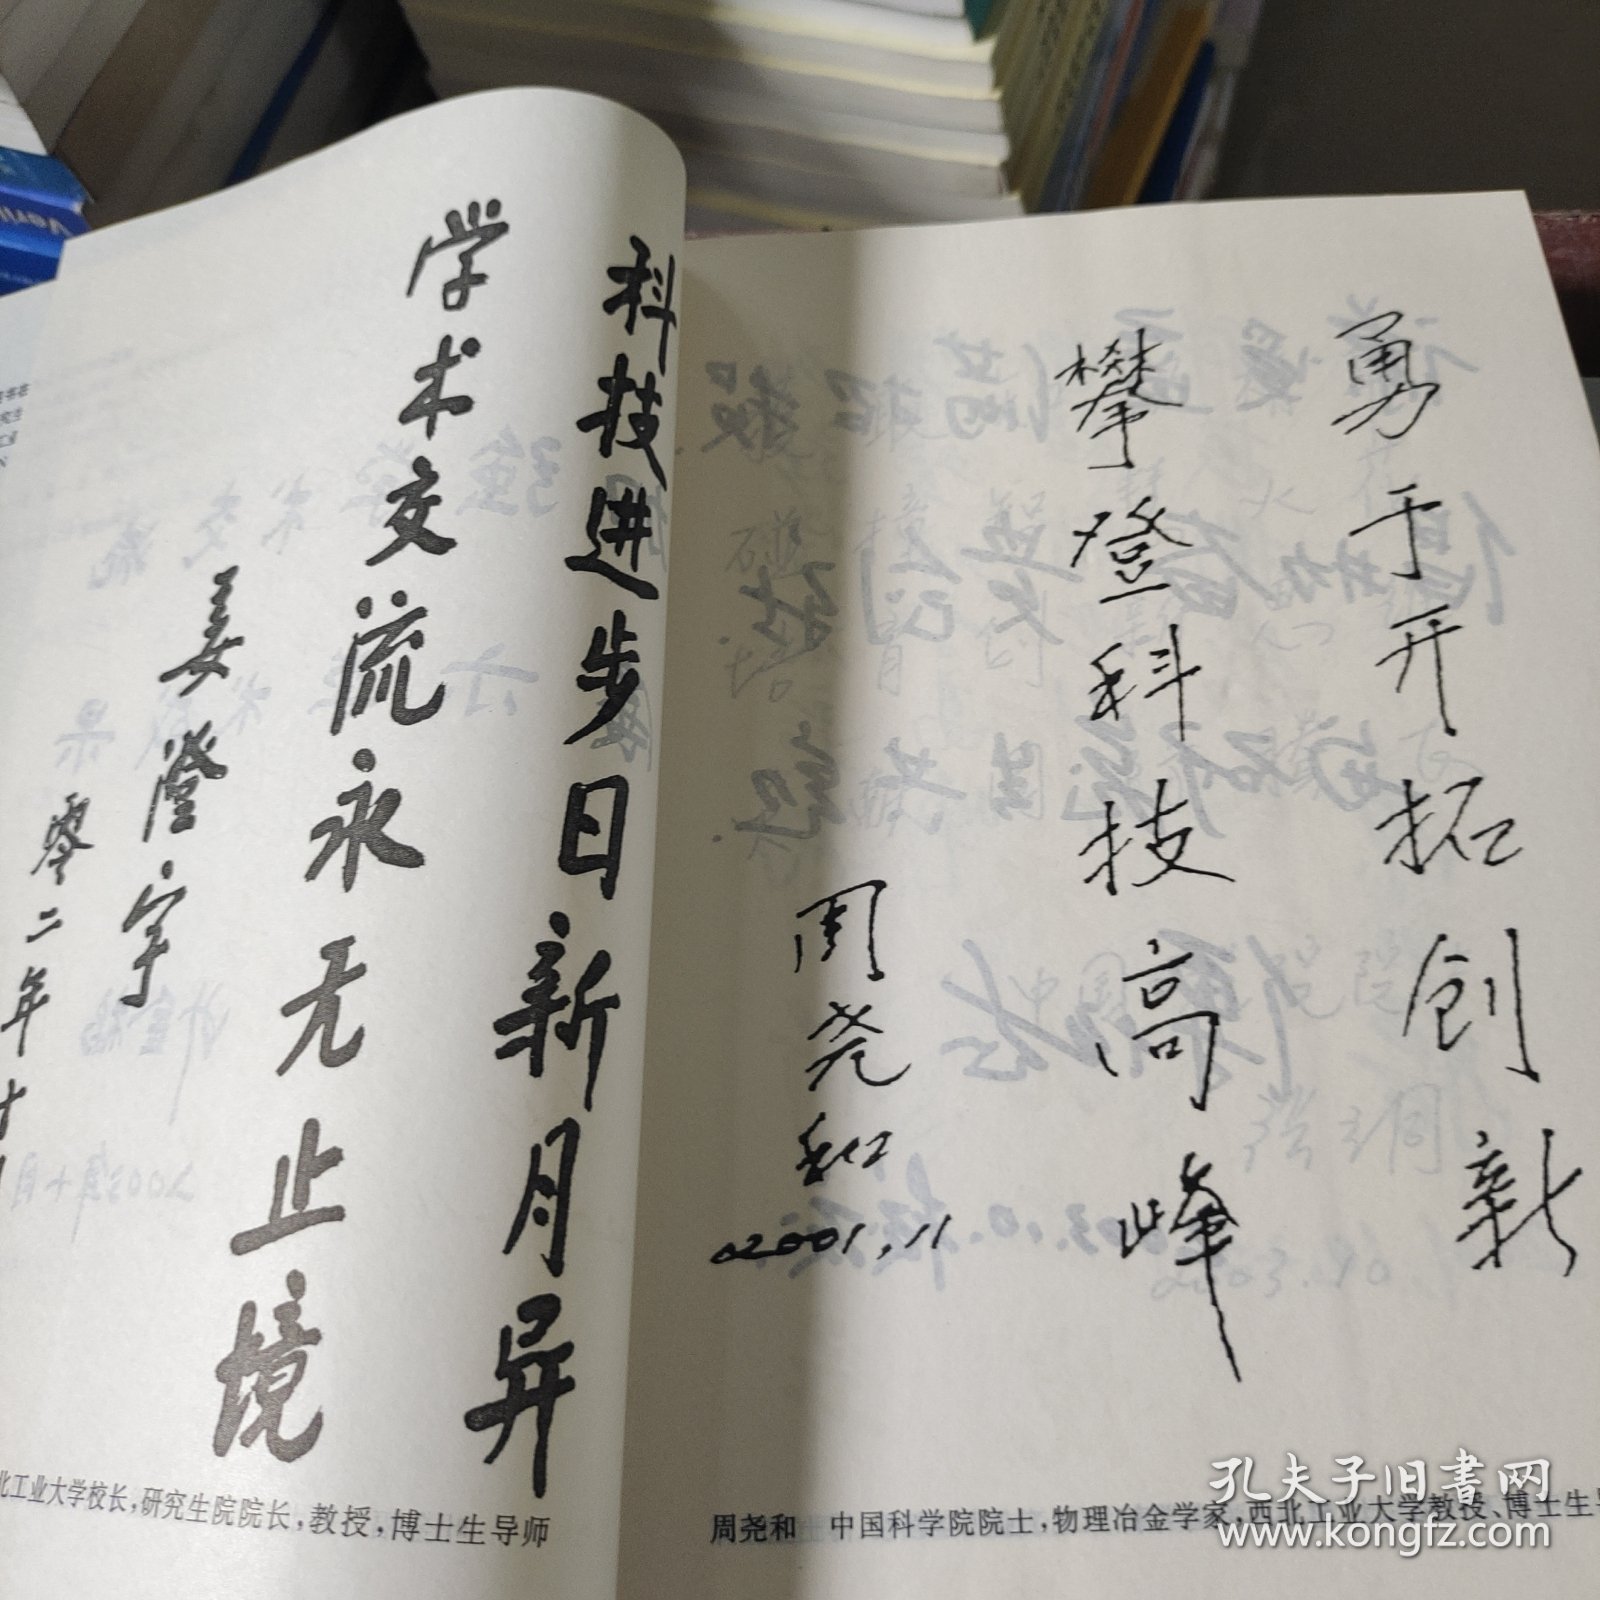 科技进步日新月异
学术交流永无止境
姜澄宇
零二年十
北工业大学校长,研究生院院长,教授,博士生导师
勇于开拓创新
攀登科技高峰
周尧和
2001.11
周尧和 中国科学院院士,物理冶金学家,西北工业大学教授、博士生导
孔夫子旧书网
www.kongfz.com